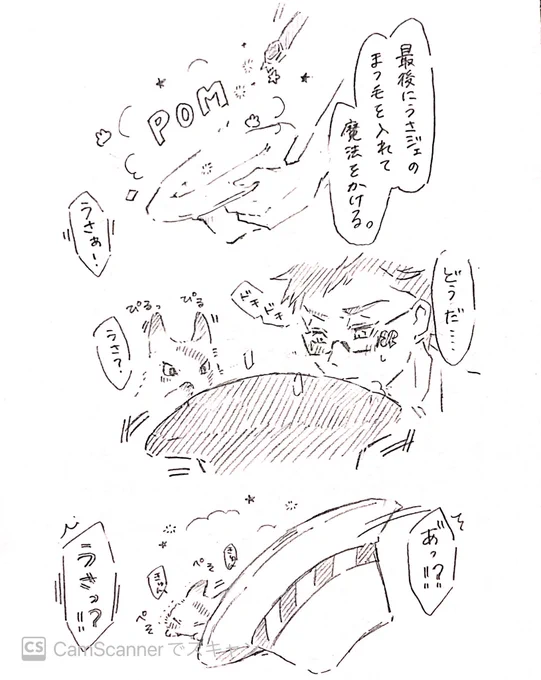 最後にうさジェの
まつ毛を入れて
魔法をかける。
POM
うさぁー!
どうだ……
ドキドキ
ぴる
ぴるっ
うさ?
あっ!?
ぺそ
ぺそ
うさっ?
CS CamScannerでスキャン